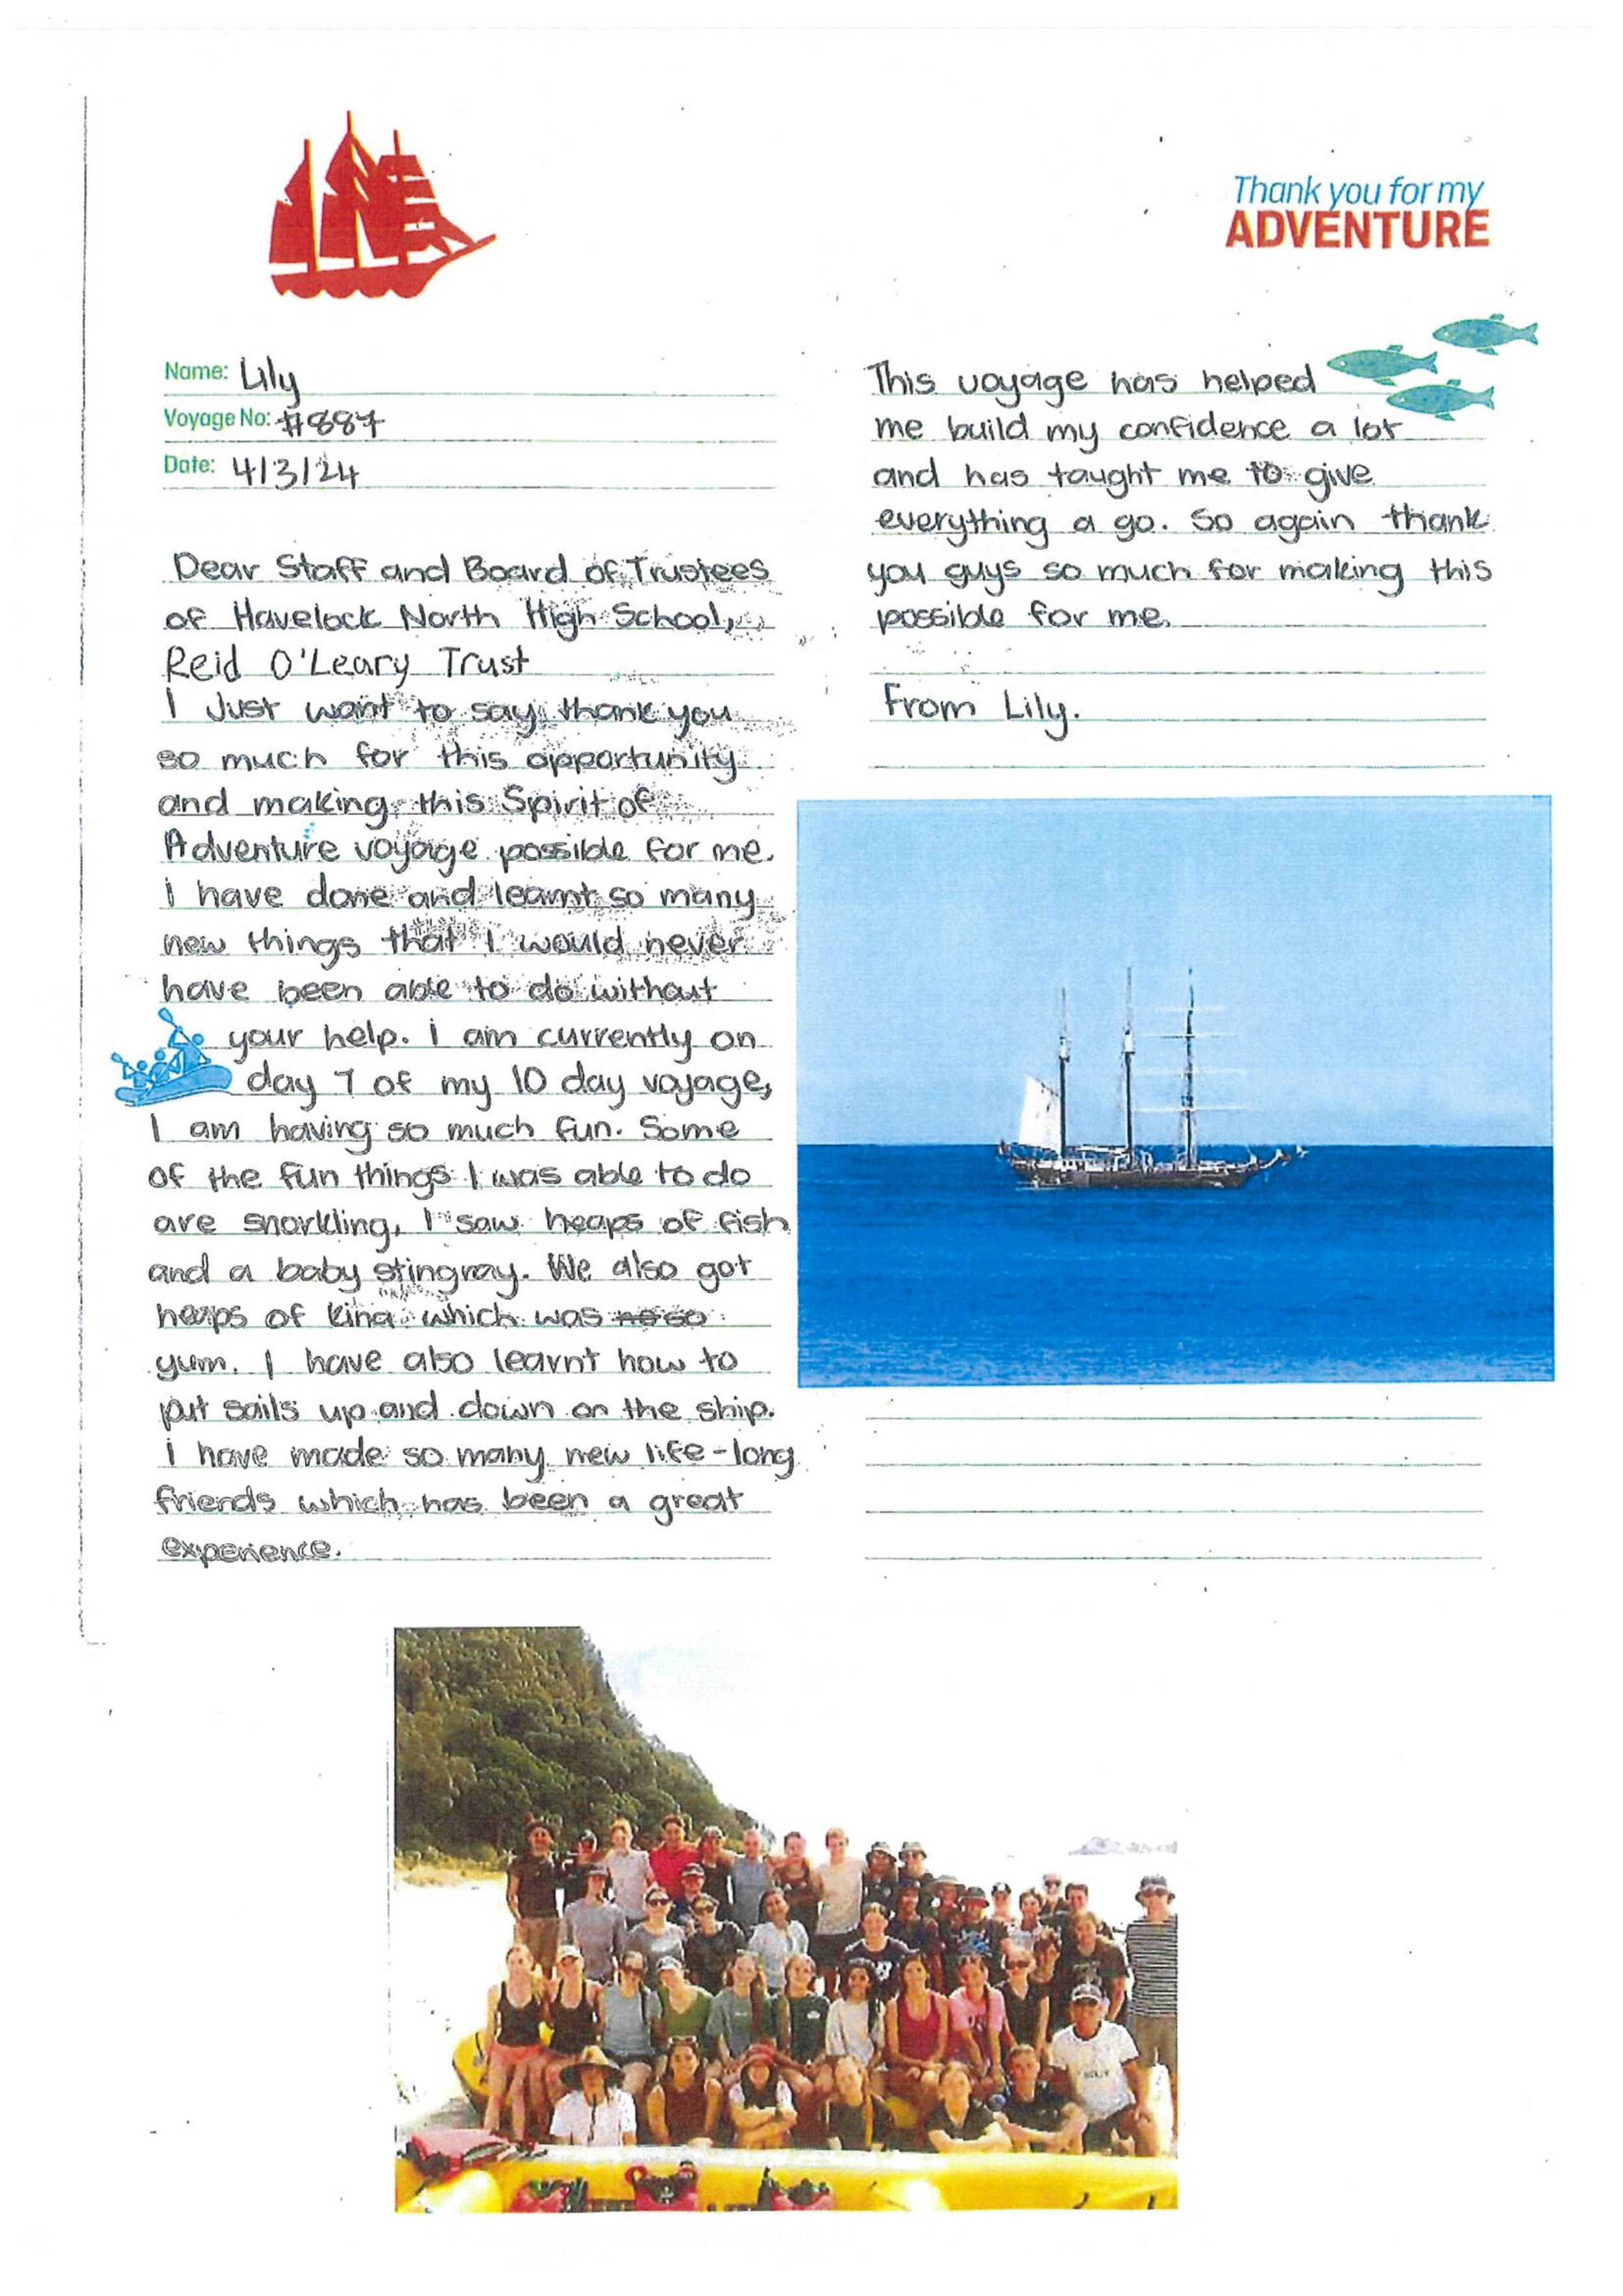 Thank you for my
ADVENTURE
Name: Lily
Voyage No: #887
Date: 4/3/24
Dear Staff and Board of Trustees
of Havelock North High School,
Reid O'Leary Trust
I Just want to say thank you
so much for this opportunity
and making this Spirit of
Adventure voyage possible for me.
i have done and learnt so many
new things that I would never
have been able to do without
your help. i am currently on
day 7 of my 10 day voyage,
I am having so much fun. Some
of the fun things I was able to do
are snorkling, I saw heaps of fish
and a baby stingray. We also got
heaps of kina which was
yum. I have also learnt how to
put sails up and down on the ship.
i have made so many new life-long
friends which has been a great
experience.
This voyage has helped
me build my confidence a lot
and has taught me to give
everything a go. So again thank
you guys so much for making this
possible for me.
From Lily.